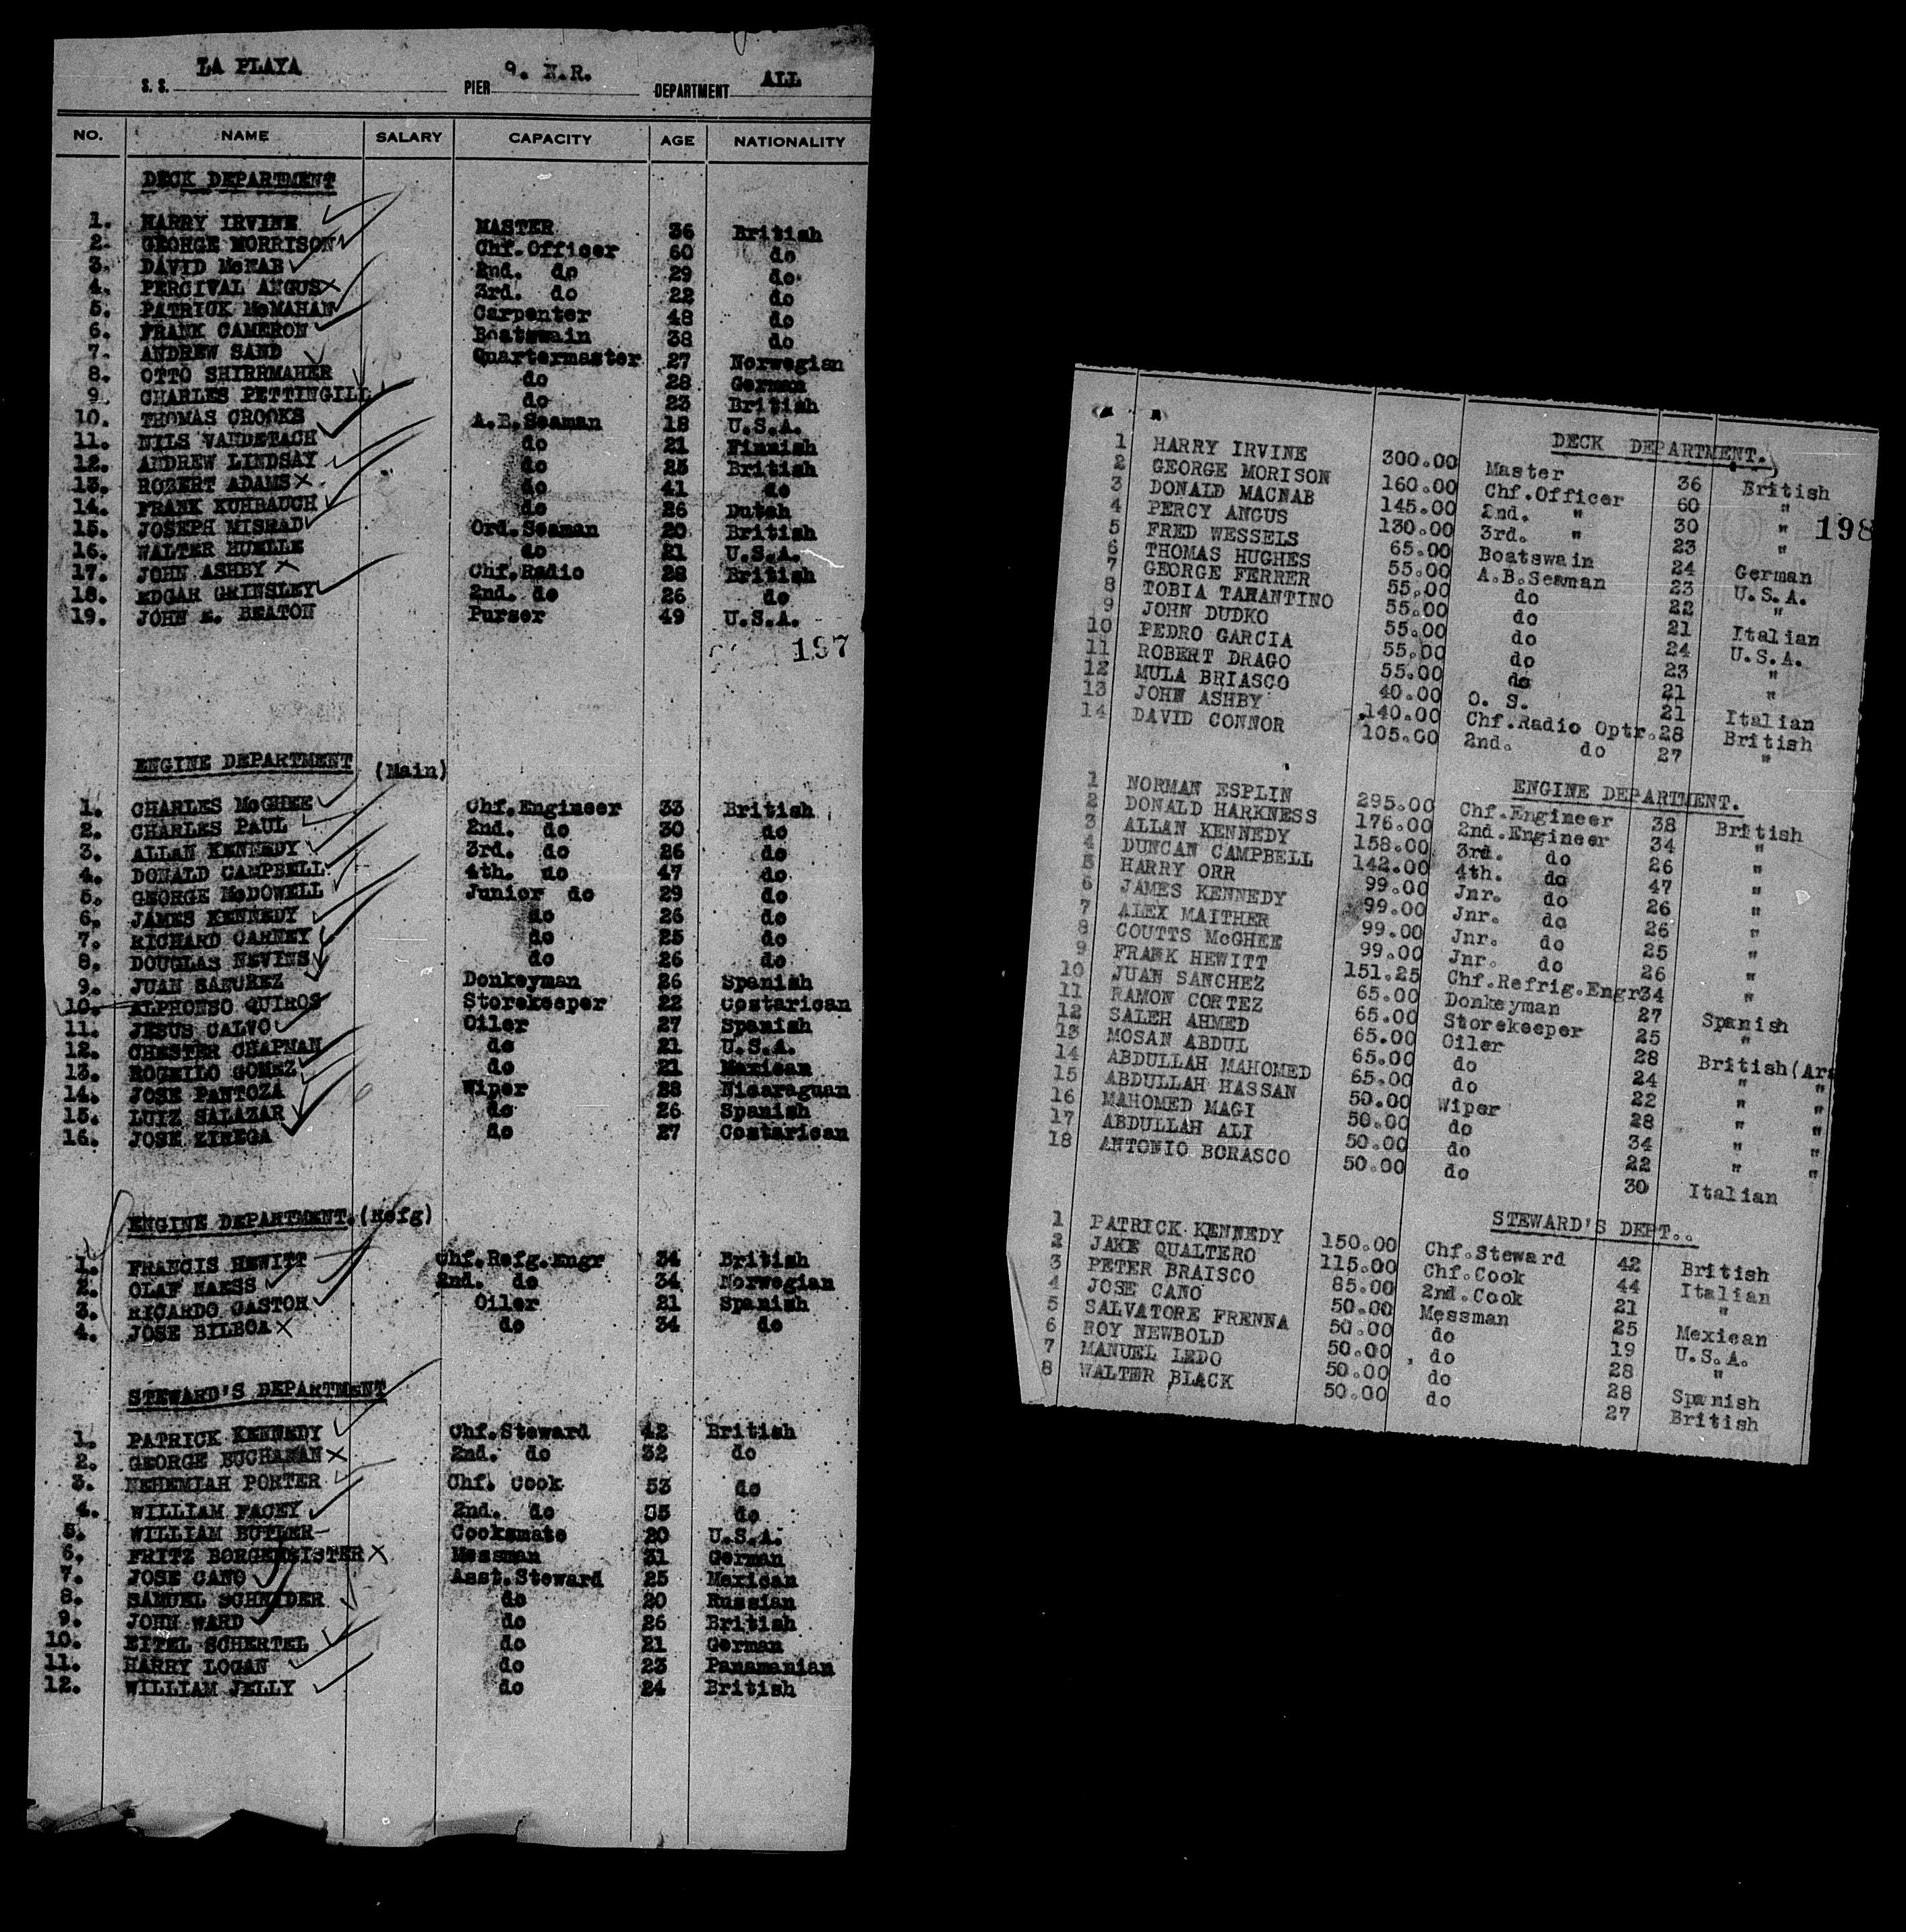 S. S. LA PLAYA PIER 9. N.R. DEPARTMENT ALL
NO. NAME SALARY CAPACITY AGE NATIONALITY
DECK DEPARTMENT
1. HARRY IRVINE MASTER 36 British
2. GEORGE MORRISON Chf.Officer 60 do
3. DAVID McNAB 2nd. do 29 do
4. PERCIVAL ANGUS 3rd. do 22 do
5. PATRICK McMAHAN Carpenter 48 do
6. FRANK CAMERON Boatswain 38 do
7. ANDREW SAND Quartermaster 27 Norwegian
8. OTTO SHIRRMAHER do 28 German
9. CHARLES PETTINGILL do 23 British
10. THOMAS CROOKS A.B.Seaman 18 U.S.A.
11. NILS VANDETACH do 21 Finnish
12. ANDREW LINDSAY do 25 British
13. ROBERT ADAMS do 41 do
14. FRANK KUHRAUGH do 26 Dutch
15. JOSEPH MISRAD Ord.Seaman 20 British
16. WALTER HUELLE do 21 U.S.A.
17. JOHN ASHBY Chf.Radio 28 British
18. EDGAR GRINSLEY 2nd. do 26 do
19. JOHN E. BEATON Purser 49 U.S.A.
197
ENGINE DEPARTMENT (Main)
1. CHARLES McGHEE Chf.Engineer 33 British
2. CHARLES PAUL 2nd. do 30 do
3. ALLAN KENNEDY 3rd. do 26 do
4. DONALD CAMPBELL 4th. do 47 do
5. GEORGE McDOWELL Junior do 29 do
6. JAMES KENNEDY do 26 do
7. RICHARD CARNEY do 25 do
8. DOUGLAS NEVINS do 26 do
9. JUAN SANCHEZ Donkeyman 26 Spanish
10. ALPHONSO QUIROS Storekeeper 22 Costarican
11. JESUS CALVO Oiler 27 Spanish
12. CHESTER CHAPMAN do 21 U.S.A.
13. ROGEILO GOMEZ do 21 Mexican
14. JOSE PANTOZA Wiper 28 Nicaraguan
15. LUIZ SALAZAR do 26 Spanish
16. JOSE ZINEGA do 27 Costarican
ENGINE DEPARTMENT.(Refg)
1. FRANCIS HEWITT Chf.Refg.Engr 34 British
2. OLAF NAESS 2nd. do 34 Norwegian
3. RICARDO CASTOR Oiler 21 Spanish
4. JOSE BILBOA do 34 do
STEWARD'S DEPARTMENT
1. PATRICK KENNEDY Chf.Steward 42 British
2. GEORGE BUCHANAN 2nd. do 32 do
3. NEHEMIAH PORTER Chf. Cook 53 do
4. WILLIAM FACEY 2nd. do 35 do
5. WILLIAM BUTLER Cooksmate 20 U.S.A.
6. FRITZ BORGEMEISTER Messman 31 German
7. JOSE CANO Asst.Steward 25 Mexican
8. SAMUEL SCHNIDER do 20 Russian
9. JOHN WARD do 26 British
10. EITEL SCHERTEL do 21 German
11. HARRY LOGAN do 23 Panamanian
12. WILLIAM JELLY do 24 British
DECK DEPARTMENT.
1 HARRY IRVINE 300.00 Master 36 British
2 GEORGE MORISON 160.00 Chf.Officer 60 "
3 DONALD MACNAB 145.00 2nd. " 30 "
198
4 PERCY ANGUS 130.00 3rd. " 23 "
5 FRED WESSELS 65.00 Boatswain 24 German
6 THOMAS HUGHES 55.00 A.B.Seaman 23 U.S.A.
7 GEORGE FERRER 55.00 do 22 "
8 TOBIA TARANTINO 55.00 do 21 Italian
9 JOHN DUDKO 55.00 do 24 U.S.A.
10 PEDRO GARCIA 55.00 do 23 "
11 ROBERT DRAGO 55.00 do 21 "
12 MULA BRIASCO 40.00 O. S. 21 Italian
13 JOHN ASHBY 140.00 Chf.Radio Optr. 28 British
14 DAVID CONNOR 105.00 2nd. do 27 "
ENGINE DEPARTMENT.
1 NORMAN ESPLIN 295.00 Chf.Engineer 38 British
2 DONALD HARKNESS 176.00 2nd.Engineer 34 "
3 ALLAN KENNEDY 158.00 3rd. do 26 "
4 DUNCAN CAMPBELL 142.00 4th. do 47 "
5 HARRY ORR 99.00 Jnr. do 26 "
6 JAMES KENNEDY 99.00 Jnr. do 26 "
7 ALEX MAITHER 99.00 Jnr. do 25 "
8 COUTTS McGHEE 99.00 Jnr. do 26 "
9 FRANK HEWITT 151.25 Chf.Refrig.Engr 34 "
10 JUAN SANCHEZ 65.00 Donkeyman 27 Spanish
11 RAMON CORTEZ 65.00 Storekeeper 25 "
12 SALEH AHMED 65.00 Oiler 28 British(Ara
13 MOSAN ABDUL 65.00 do 24 " "
14 ABDULLAH MAHOMED 65.00 do 22 " "
15 ABDULLAH HASSAN 50.00 Wiper 28 " "
16 MAHOMED MAGI 50.00 do 34 " "
17 ABDULLAH ALI 50.00 do 22 " "
18 ANTONIO BORASCO 50.00 do 30 Italian
STEWARD'S DEPT..
1 PATRICK KENNEDY 150.00 Chf.Steward 42 British
2 JAKE QUALTERO 115.00 Chf.Cook 44 Italian
3 PETER BRAISCO 85.00 2nd.Cook 21 "
4 JOSE CANO 50.00 Messman 25 Mexican
5 SALVATORE FRENNA 50.00 do 19 U.S.A.
6 ROY NEWBOLD 50.00 do 28 "
7 MANUEL LEDO 50.00 do 28 Spanish
8 WALTER BLACK 50.00 do 27 British